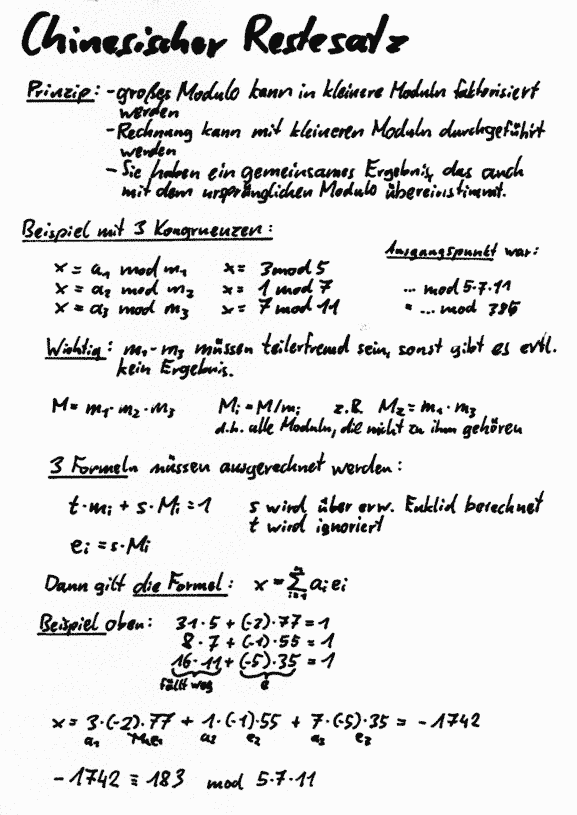 Chinesischer Restesatz
Prinzip: - großes Modulo kann in kleinere Moduln faktorisiert
werden
- Rechnung kann mit kleineren Moduln durchgeführt
werden
- Sie haben ein gemeinsames Ergebnis, das auch
mit dem ursprünglichen Modulo übereinstimmt.
Beispiel mit 3 Kongruenzen:
Ausgangspunkt war:
x = a₁ mod m₁ x = 3 mod 5
x = a₂ mod m₂ x = 1 mod 7 ... mod 5·7·11
x = a₃ mod m₃ x = 7 mod 11 = ... mod 385
Wichtig: m₁ - m₃ müssen teilerfremd sein, sonst gibt es evtl.
kein Ergebnis.
M = m₁·m₂·m₃ Mᵢ = M/mᵢ z.B. M₂ = m₁·m₃
d.h. alle Moduln, die nicht zu ihm gehören
3 Formeln müssen ausgerechnet werden:
t·mᵢ + s·Mᵢ = 1 s wird über erw. Euklid berechnet
t wird ignoriert
eᵢ = s·Mᵢ
Dann gilt die Formel: x = ∑ᵢ₌₁ⁿ aᵢ eᵢ
Beispiel oben: 31·5 + (-2)·77 = 1
8·7 + (-1)·55 = 1
16·11 + (-5)·35 = 1
fällt weg e
x = 3·(-2)·77 + 1·(-1)·55 + 7·(-5)·35 = -1742
a₁ e₁ a₂ e₂ a₃ e₃
-1742 ≡ 183 mod 5·7·11